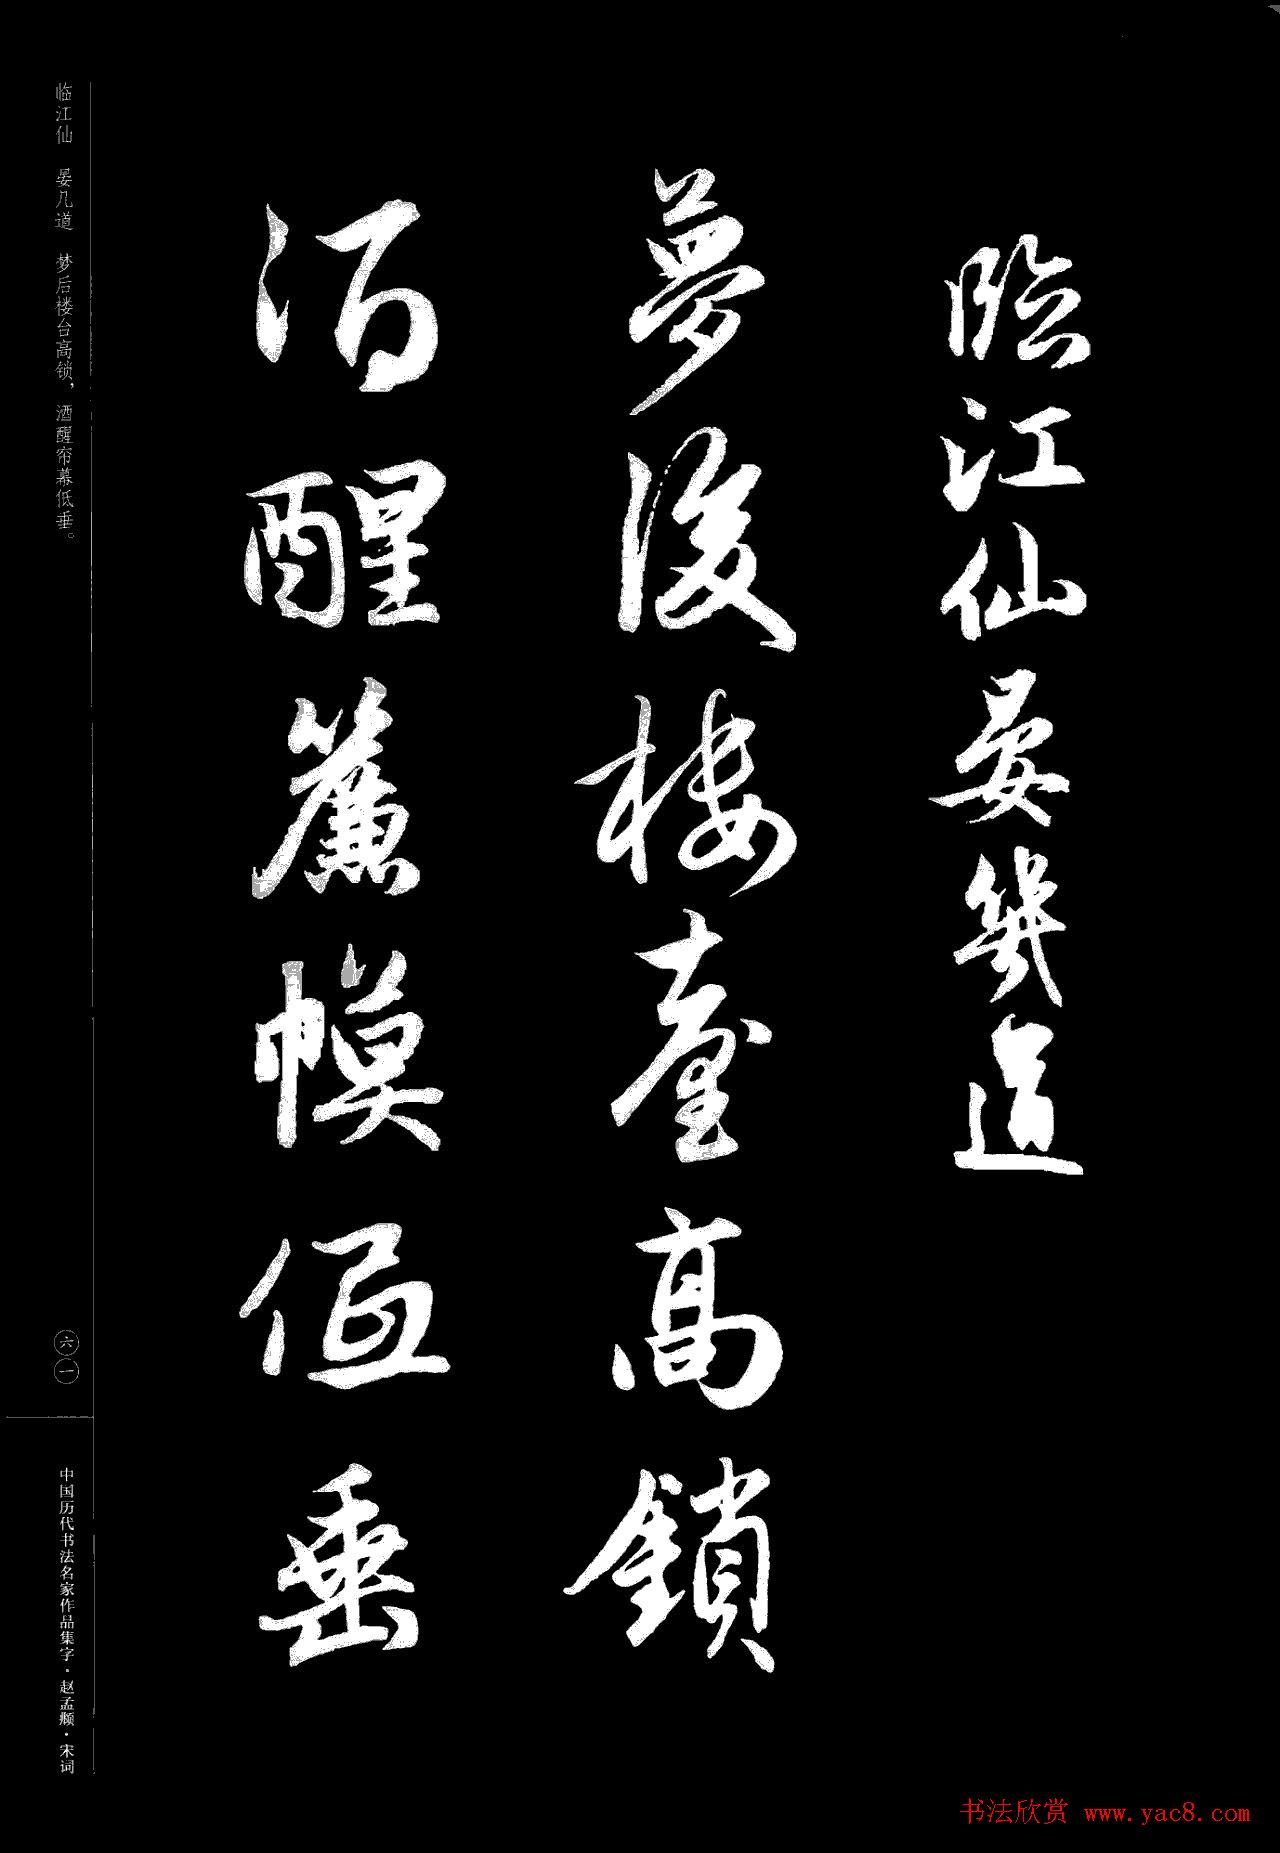 臨江仙晏幾道
夢後樓臺高鎖
酒醒簾幙低垂
临江仙 晏几道 梦后楼台高锁，酒醒帘幕低垂。
六一
中国历代书法名家作品集字·赵孟頫·宋词
书法欣赏 www.yac8.com